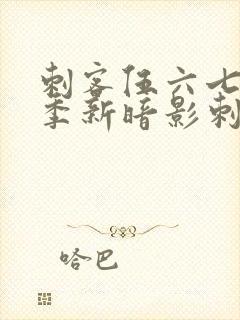 刺客伍六七
季新暗影刺
哈巴